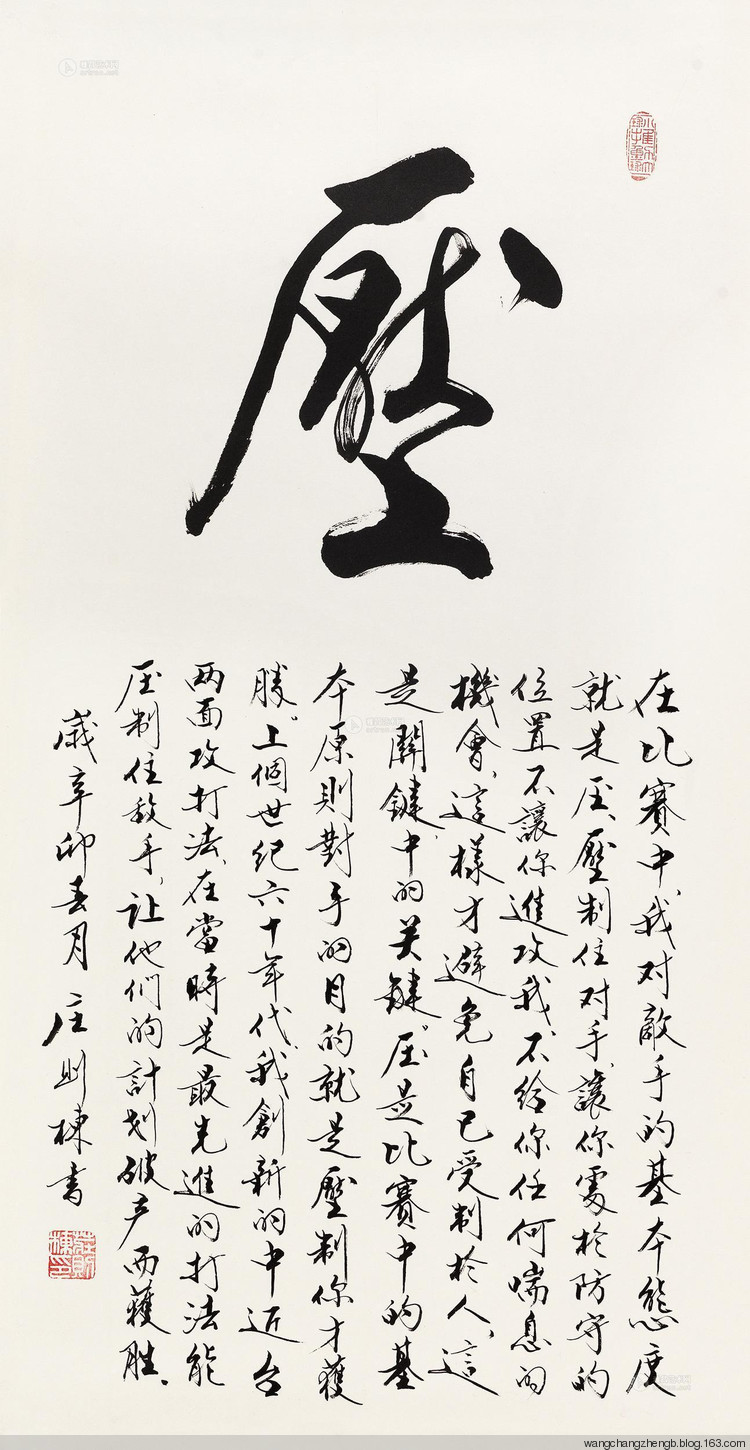 壓
在比赛中,我对敵手的基本態度
就是压,壓制住对手,讓你処於防守的
位置不讓你進攻我,不给你任何喘息的
機會,這樣才避免自己受制於人,這
是關鍵中的关鍵。压是比賽中的基
本原則對手的目的就是壓制你才獲
勝。上個世纪六十年代,我創新的中近台
两面攻打法,在當時是最先進的打法能
压制住敌手,让他們的計划破产而獲胜。
歲辛卯春月庄则棟书
莊則棟印
wangchangzhengb.blog.163.com